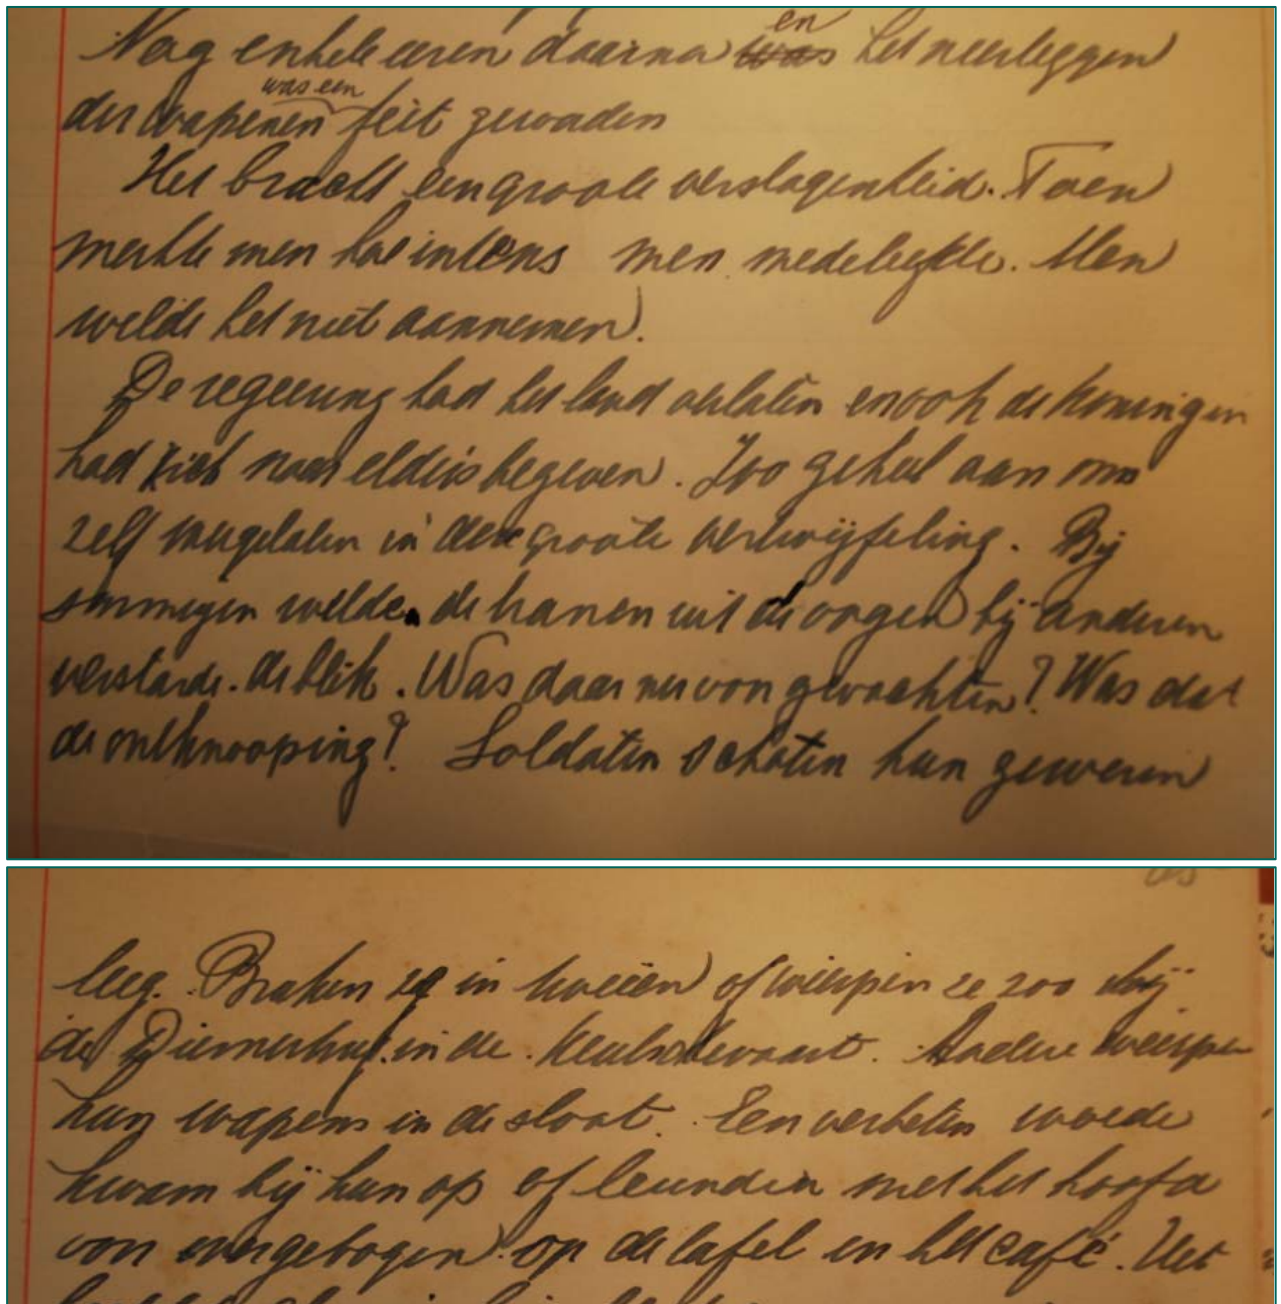 Nog enkele eeren daarna en het neerleggen
der wapenen was een feit geworden
Het bracht een groote verslagenheid. Toen
merkte men hoe intens men medeleefde. Men
wilde het niet aannemen.
De regeering had het land verlaten en ook de Koningin
had zich naar elders begeven. Zoo geheel aan ons
zelf overgelaten in deze groote vertwijfeling. Bij
sommigen welden de tranen uit de oogen bij anderen
verstarde de blik. Was daar nu voor gevochten? Was dat
de ontknooping? Soldaten schoten hun geweren
leeg. Braken ze in tweeën of wierpen ze zoo bij
de Diemerbrug in de Keulschevaart. Andere wierpen
hun wapens in de sloot. Een verbeten woede
kwam bij hun op of leunden met het hoofd
voorovergebogen op de tafel in het café. Het